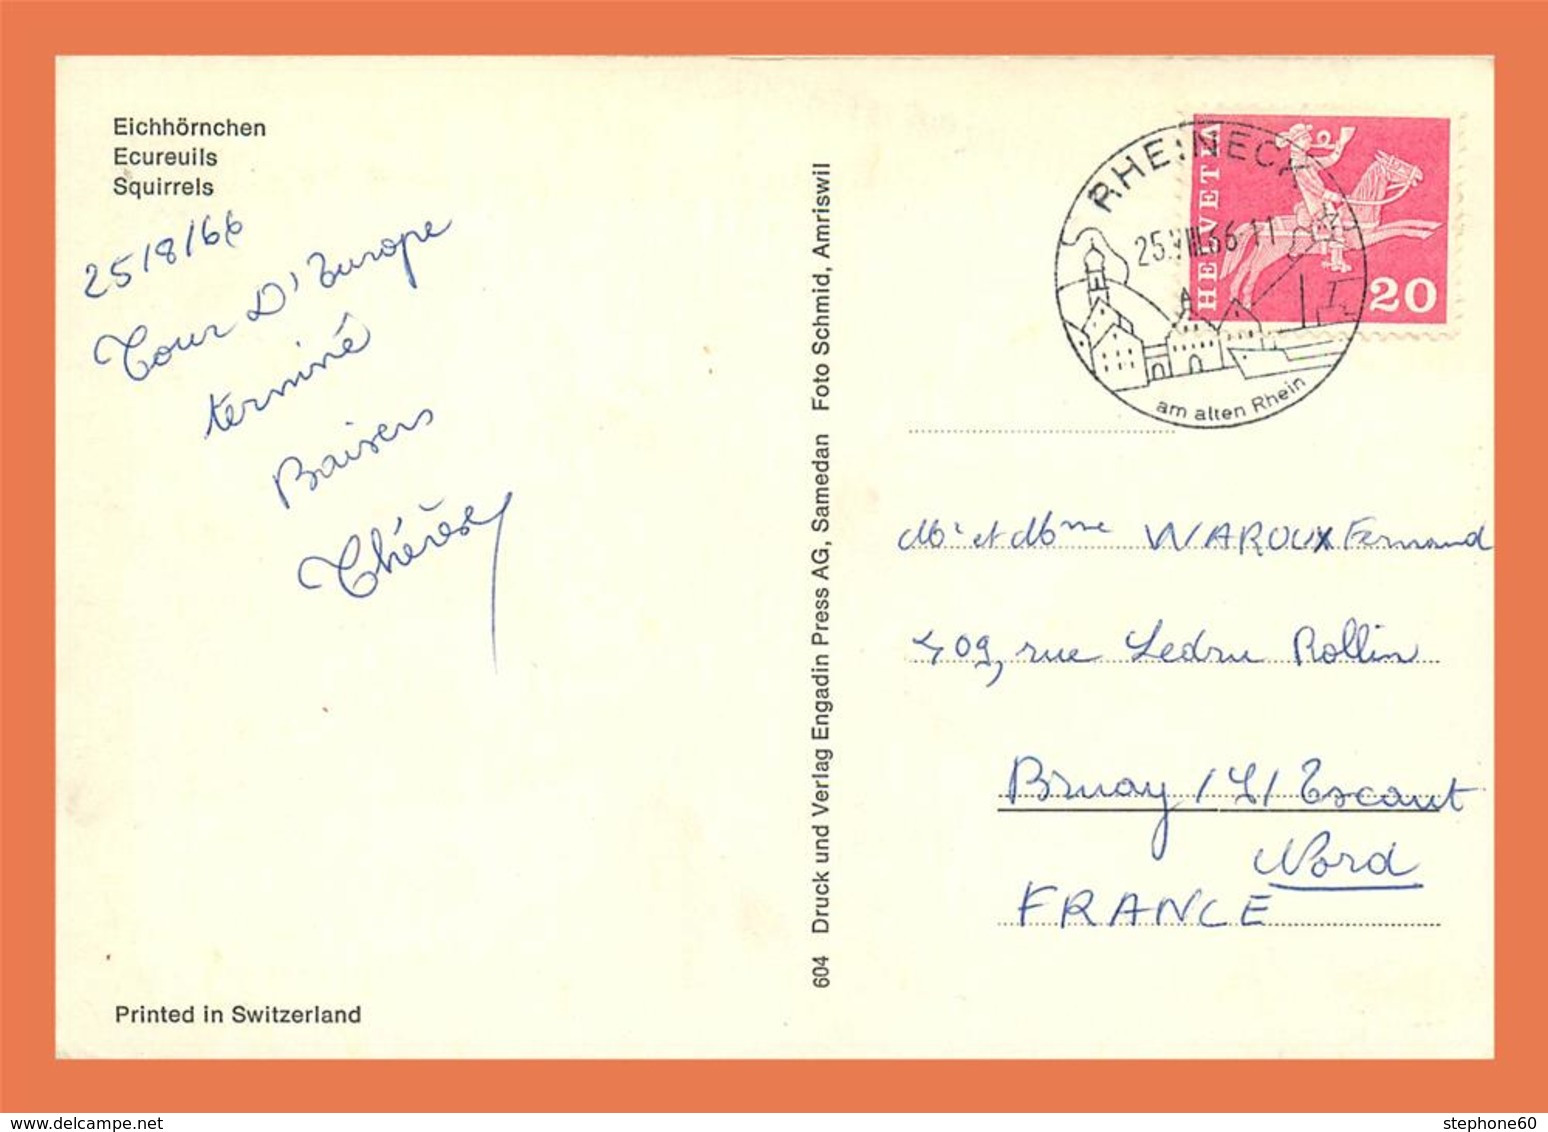 Eichhörnchen
Ecureuils
Squirrels
25/8/66
Tour D'Europe
terminé
Baisers
Thérèse
Printed in Switzerland
604 Druck und Verlag Engadin Press AG, Samedan Foto Schmid, Amriswil
RHEINECK
25.VIII.66-11
am alten Rhein
HELVETIA
20
Mr et Mme WAROUX Fernand
409, rue Ledru Rollin
Bruay /S/ Escaut
Nord
FRANCE
stephone60